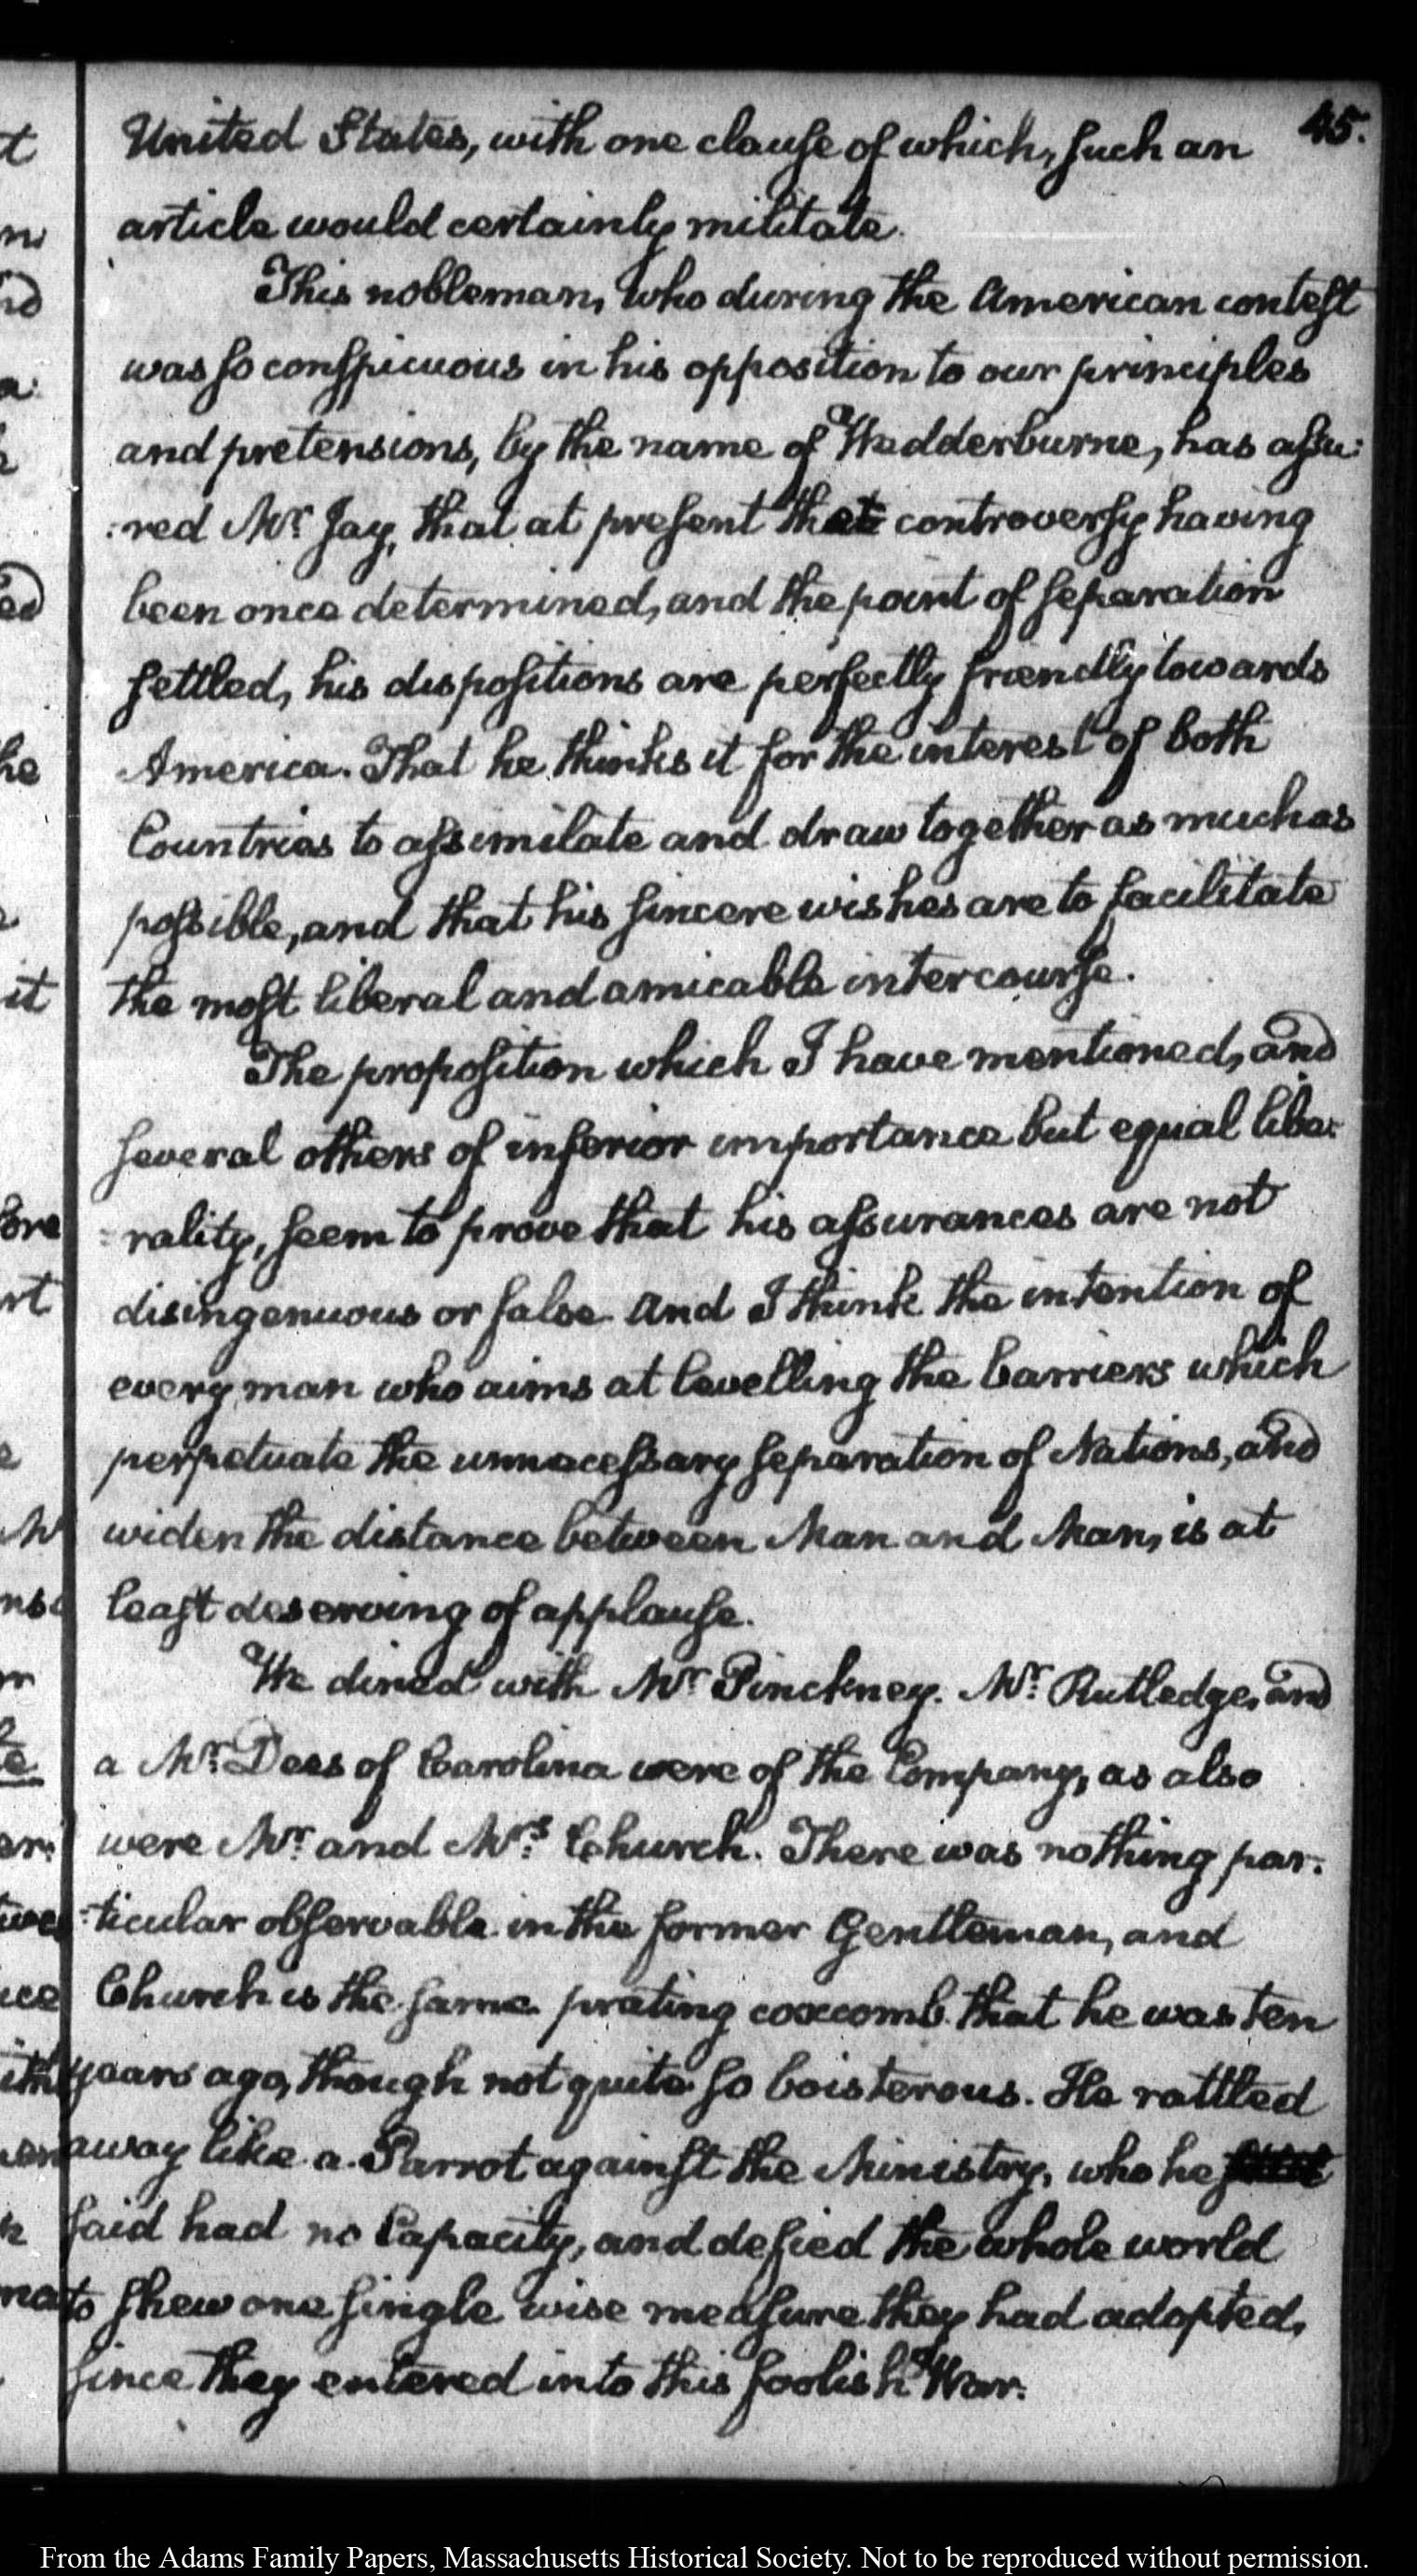 45.
United States, with one clause of which, such an
article would certainly militate.
This nobleman, who during the American contest
was so conspicuous in his opposition to our principles
and pretensions, by the name of Wedderburne, has assu:
:red Mr. Jay, that at present that controversy having
been once determined, and the point of separation
settled, his dispositions are perfectly friendly towards
America. That he thinks it for the interest of both
Countries to assimilate and draw together as much as
possible, and that his sincere wishes are to facilitate
the most liberal and amicable intercourse.
The proposition which I have mentioned, and
several others of inferior importance but equal libe:
:rality, seem to prove that his assurances are not
disingenuous or false. And I think the intention of
every man who aims at levelling the barriers which
perpetuate the unnecessary separation of Nations, and
widen the distance between Man and Man, is at
least deserving of applause.
We dined with Mr. Pinckney. Mr. Rutledge, and
a Mr. Deas of Carolina were of the Company, as also
were Mr. and Mrs. Church. There was nothing par:
:ticular observable in the former Gentleman, and
Church is the same prating coxcomb that he was ten
years ago, though not quite so boisterous. He rattled
away like a Parrot against the Ministry, who he
said had no Capacity, and defied the whole world
to shew one single wise measure they had adopted,
since they entered into this foolish War.
From the Adams Family Papers, Massachusetts Historical Society. Not to be reproduced without permission.